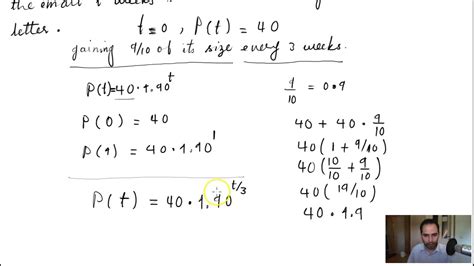 the email t weeks
letter. t=0, P(t)=40
gaining 9/10 of its size every 3 weeks.
P(t)=40·1.90^t
P(0)=40
P(1)=40·1.90^1
P(t)=40·1.90^t/3
9/10 = 0.9
40+40·9/10
40(1+9/10)
40(10/10+9/10)
40(19/10)
40·1.9